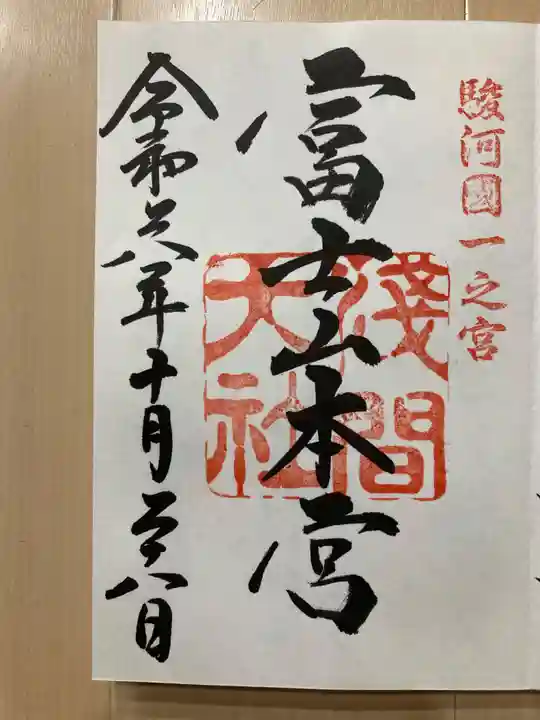 駿河國一之宮
富士山本宮
淺間
大社
令和六年十月二十八日